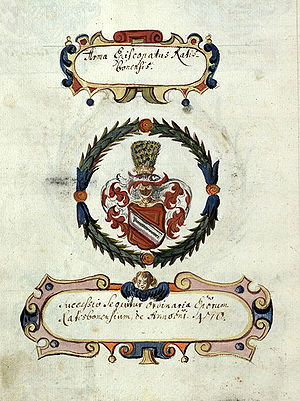 Arma Episcopatus Ratis-
bonensis.
Successio Sequitur ordinaria
Ratisbonensium, de Anno